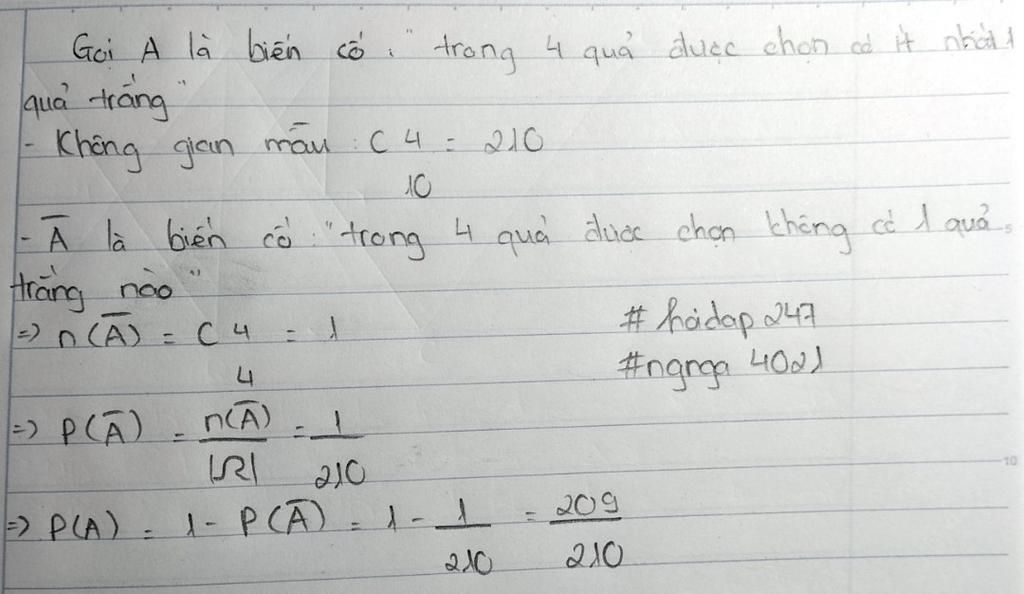 Gọi A là biến cố: "trong 4 quả được chọn có ít nhất 1
quả trắng"
- Không gian mẫu: C 4 = 210
10
- A̅ là biến cố: "trong 4 quả được chọn không có 1 quả
trắng nào"
=> n(A̅) = C 4 = 1
4
#hoidap247
#ngnga 4021
=> P(A̅) = n(A̅)/|Ω| = 1/210
=> P(A) = 1 - P(A̅) = 1 - 1/210 = 209/210
10